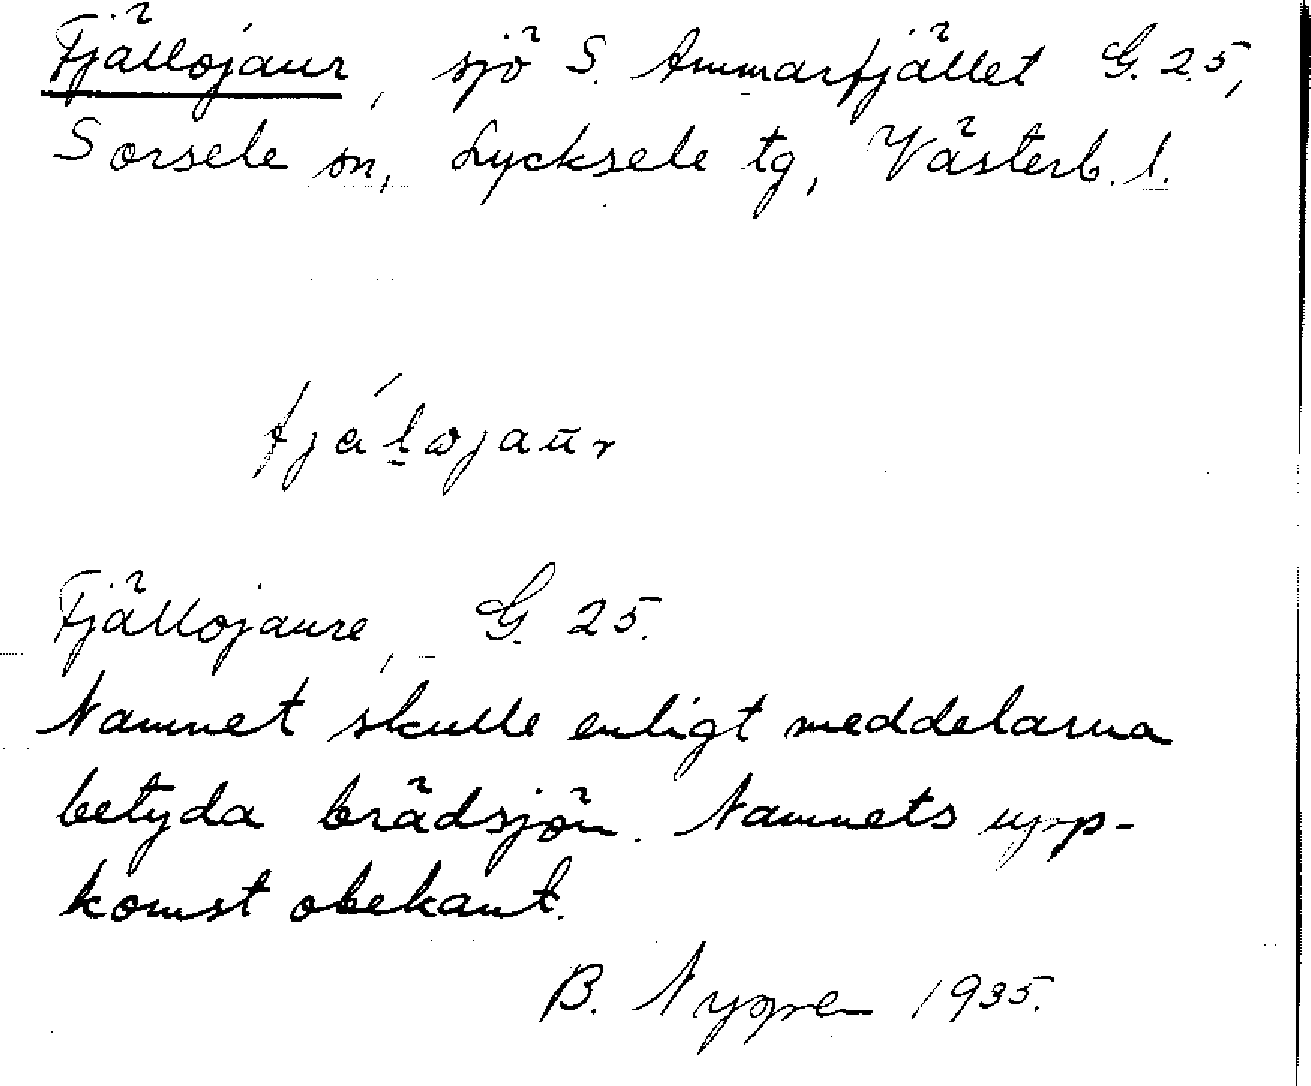 Fjällojaur, sjö S. Ammarfjället G. 25,
Sorsele sn, Lycksele tg, Västerb. l.
fjáḻojaūr
Fjällojaure, G. 25.
Namnet skulle enligt meddelarna
betyda brädsjön. Namnets upp-
komst obekant.
B. Nyppen 1935.